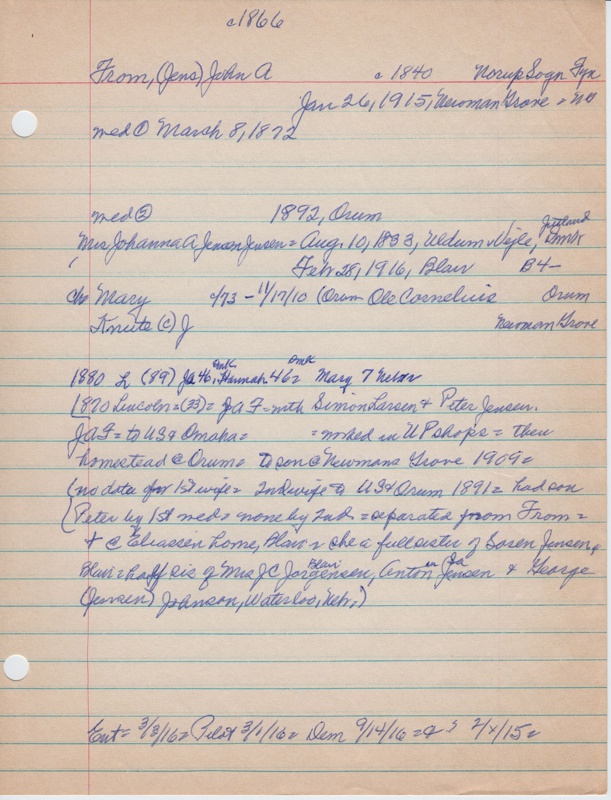 c1866
From, (Jens) John A c 1840 Norup Sogn Fyn
Jan 26, 1915, Newman Grove =
med ① March 8, 1872
med ② 1892, Orum
Jutland
Mrs Johanna A Jensen Jensen = Aug. 10, 1833, Uldum Vejle, Dmk
Feb. 28, 1916, Blair B4-
ch= Mary c/73 - 11/17/10 (Orum Ole Cornelius Orum
Knute (c) J Newman Grove
Dmk Dmk
1880 L (89) JA 46, Hannah 46= Mary 7
1870 Lincoln = (23) = JAF = with Simon Larsen & Peter Jensen.
JAF = to US & Omaha = = worked in UP shops = then
homestead @ Orum = to son @ Newmans Grove 1909 =
(no data for 1st wife = 2nd wife to US & Orum 1891 = had son
Peter by 1st med = none by 2nd = separated from From =
+ @ Eliassen home, Blair = she a full sister of Soren Jensen,
Blair
Blair = half sis of Mrs JC Jorgensen, Anton Jensen & George
(Jensen) Johnson, Waterloo, Nebr.)
Ent = 3/8/16 = Pilot 3/1/16 = Dem 9/14/16 = 2/4/15 =